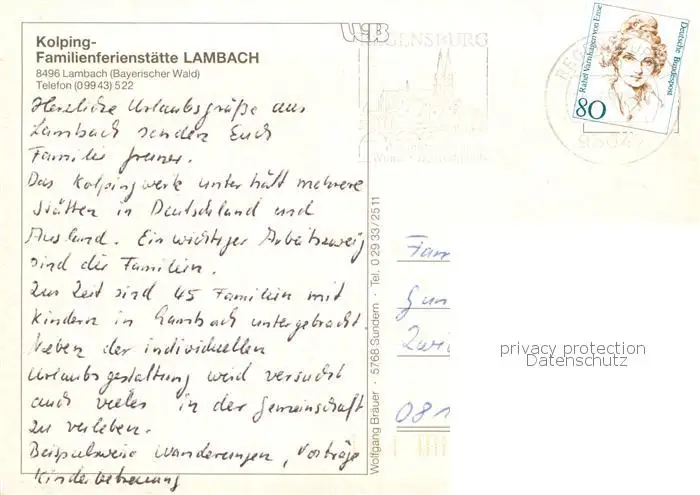 Kolping-
Familienferienstätte LAMBACH
8496 Lambach (Bayerischer Wald)
Telefon (09943) 522
Herzliche Urlaubsgrüße aus
Lambach senden Euch
Familie
Das Kolpingwerk unterhält mehrere
Stätten in Deutschland und
Ausland. Ein wichtiger Arbeitszweig
sind die Familien.
Zur Zeit sind 45 Familien mit
Kindern in Lambach untergebracht.
Neben der individuellen
Urlaubsgestaltung wird versucht
auch vieles in der Gemeinschaft
zu verleben.
Beispielsweise Wanderungen, Vorträge
Kinderbetreuung
Wolfgang Bräuer · 5768 Sundern · Tel. 0 29 33/25 11
REGENSBURG
80
Rahel Varnhagen von Ense
Deutsche Bundespost
Fam
Gun
081
privacy protection
Datenschutz